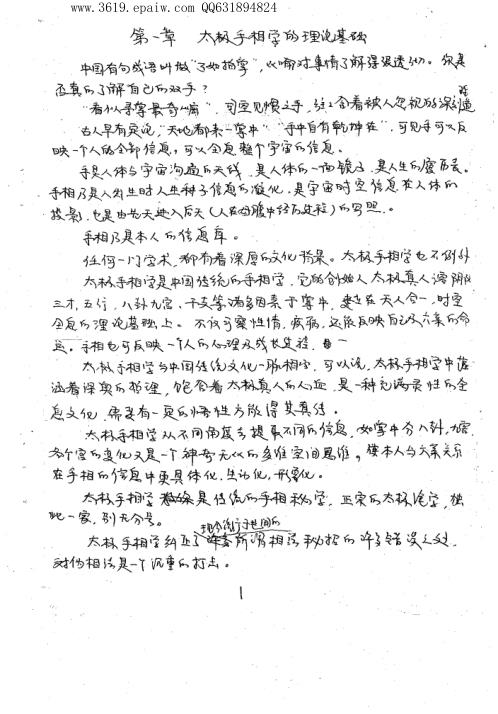 www.3619.epaiw.com QQ631894824
第一章 太极手相学的理论基础
中国有句成语叫做“了如指掌”，比喻对事情了解得很透彻。你是
否真的了解自己的双手？
“看似寻常最奇崛”，司空见惯之手，往往含着被人忽视的深
古人早有定论，“天地都来一掌中”“手中自有乾坤在”，可见手可以反
映一个人的全部信息，可以全息整个宇宙的信息。
手是人体与宇宙沟通的天线，是人体的一面镜子，是人生的密码表。
手相乃是人出生时人生种子信息的液化，是宇宙时空信息在人体的
投影，也是由先天进入后天（人在母腹中经历过程）的写照。
手相乃是本人的信息库。
任何一门学术，都有着深厚的文化背景。太极手相学也不例外
太极手相学是中国传统的手相学，它的创始人太极真人溶阴阳
三才，五行，八卦九宫、干支等诸多因素于掌中，建立在天人合一，时空
全息的理论基础上。不仅可察性情，疾病，还能反映自己及六亲的命
运。手相也可反映一个人的心理及成长过程。
太极手相学与中国传统文化一脉相承，可以说，太极手相学中蕴
涵着深奥的哲理，饱含着太极真人的心血，是一种充满灵性的全
息文化，需要有一定的悟性方能得其真传。
太极手相学从不同角度去提取不同的信息，如掌中分八卦，九宫，
各个宫的变化又是一个神奇无比的多维空间思维。使本人与六亲关系
在手相的信息中更具体化，生动化，形象化。
太极手相学是传统的手相秘学，正宗的太极绝学，独
此一家，别无分号。
太极手相学纠正了现今流行于世间的所谓相法秘招的许多错误之处，
对伪相法是一个沉重的打击。
1